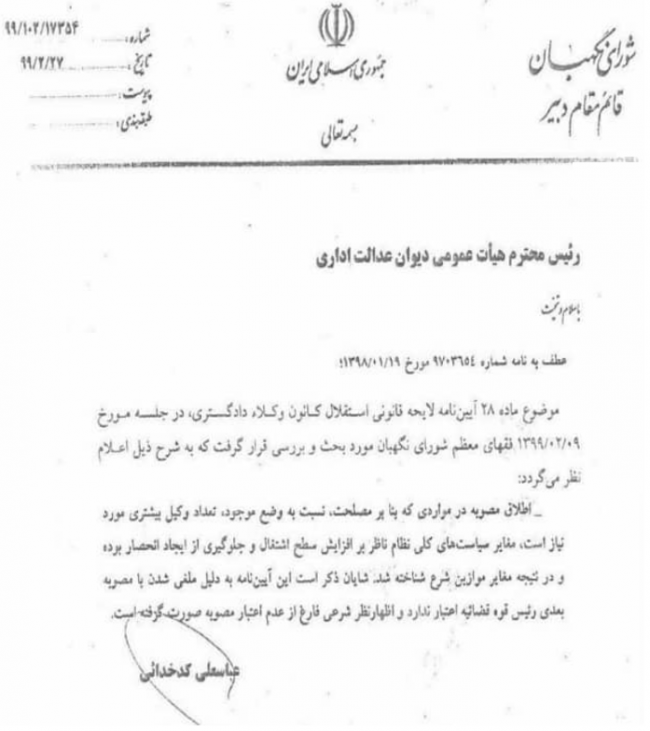 شماره: ۹۹/۱۰۲/۱۷۳۵۴
تاریخ: ۹۹/۲/۲۷
پیوست:
طبقه‌بندی:
جمهوری اسلامی ایران
بسمه تعالی
شورای نگهبان
قائم مقام دبیر
رئیس محترم هیأت عمومی دیوان عدالت اداری
باسلام و تحیت
عطف به نامه شماره ۹۷۰۳۶۵٤ مورخ ۱۳۹۸/۰۱/۱۹؛
موضوع ماده ۲۸ آیین‌نامه لایحه قانونی استقلال کانون وکلاء دادگستری، در جلسه مورخ
۱۳۹۹/۰۲/۰۹ فقهای معظم شورای نگهبان مورد بحث و بررسی قرار گرفت که به شرح ذیل اعلام
نظر می‌گردد:
_ اطلاق مصوبه در مواردی که بنا بر مصلحت، نسبت به وضع موجود، تعداد وکیل بیشتری مورد
نیاز است، مغایر سیاست‌های کلی نظام ناظر بر افزایش سطح اشتغال و جلوگیری از ایجاد انحصار بوده
و در نتیجه مغایر موازین شرع شناخته شد. شایان ذکر است این آیین‌نامه به دلیل ملغی شدن با مصوبه
بعدی رئیس قوه قضائیه اعتبار ندارد و اظهارنظر شرعی فارغ از عدم اعتبار مصوبه صورت گرفته است.
عباسعلی کدخدائی